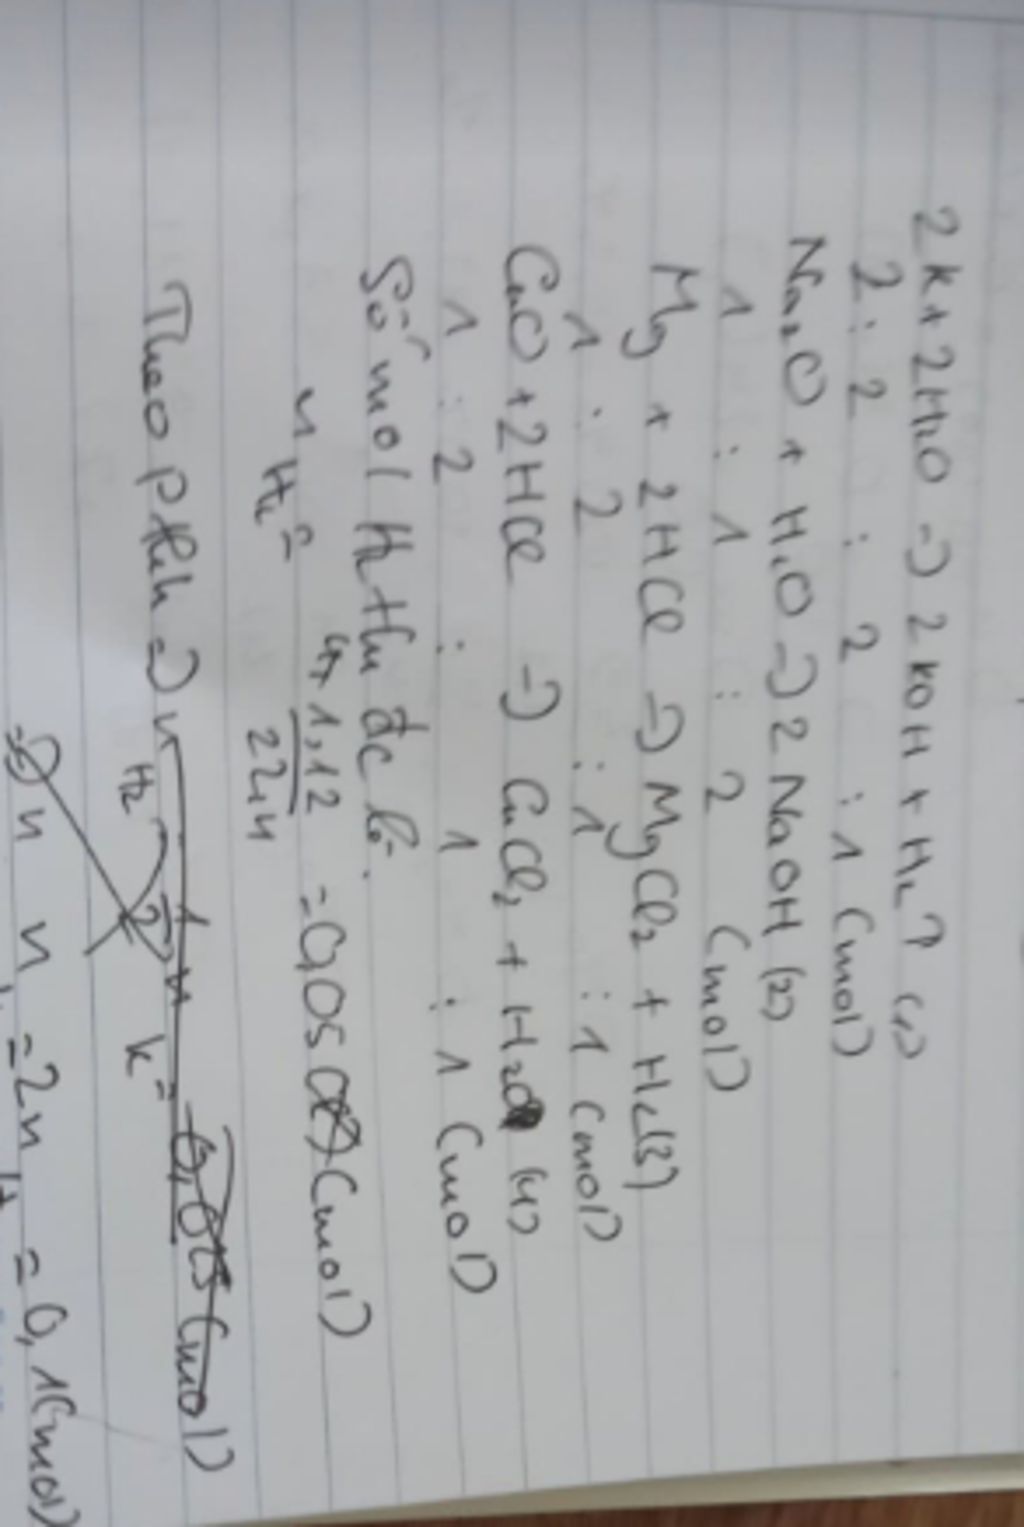 2K + 2H2O => 2KOH + H2↑ (1)
2 : 2 : 2 : 1 (mol)
Na2O + H2O => 2NaOH (2)
1 : 1 : 2 (mol)
Mg + 2HCl => MgCl2 + H2 (3)
1 : 2 : 1 : 1 (mol)
CuO + 2HCl => CuCl2 + H2O (4)
1 : 2 : 1 : 1 (mol)
Số mol H2 thu đc là:
n H2 = 1,12 / 22,4 = 0,05 (mol)
Theo pthh => n H2 = 1/2 n K = 0,05 (mol)
=> n n = 2n = 0,1 (mol)